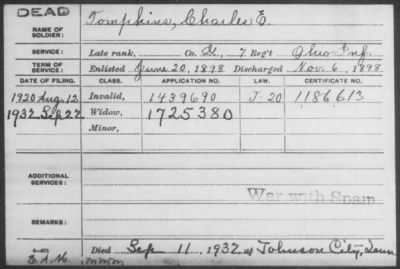 DEAD
NAME OF SOLDIER: Tompkins, Charles E.
SERVICE: Late rank, Co. G, 7 Reg't Ohio Inf.
TERM OF SERVICE: Enlisted June 20, 1898 Discharged Nov. 6, 1898
DATE OF FILING. CLASS. APPLICATION NO. LAW. CERTIFICATE NO.
1920 Aug. 12 Invalid, 1439690 J-20 1186613
1932 Sep 22 Widow, 1725380
Minor,
ADDITIONAL SERVICES:
War with Spain
REMARKS:
Died Sep 11, 1932 at Johnson City, Tenn